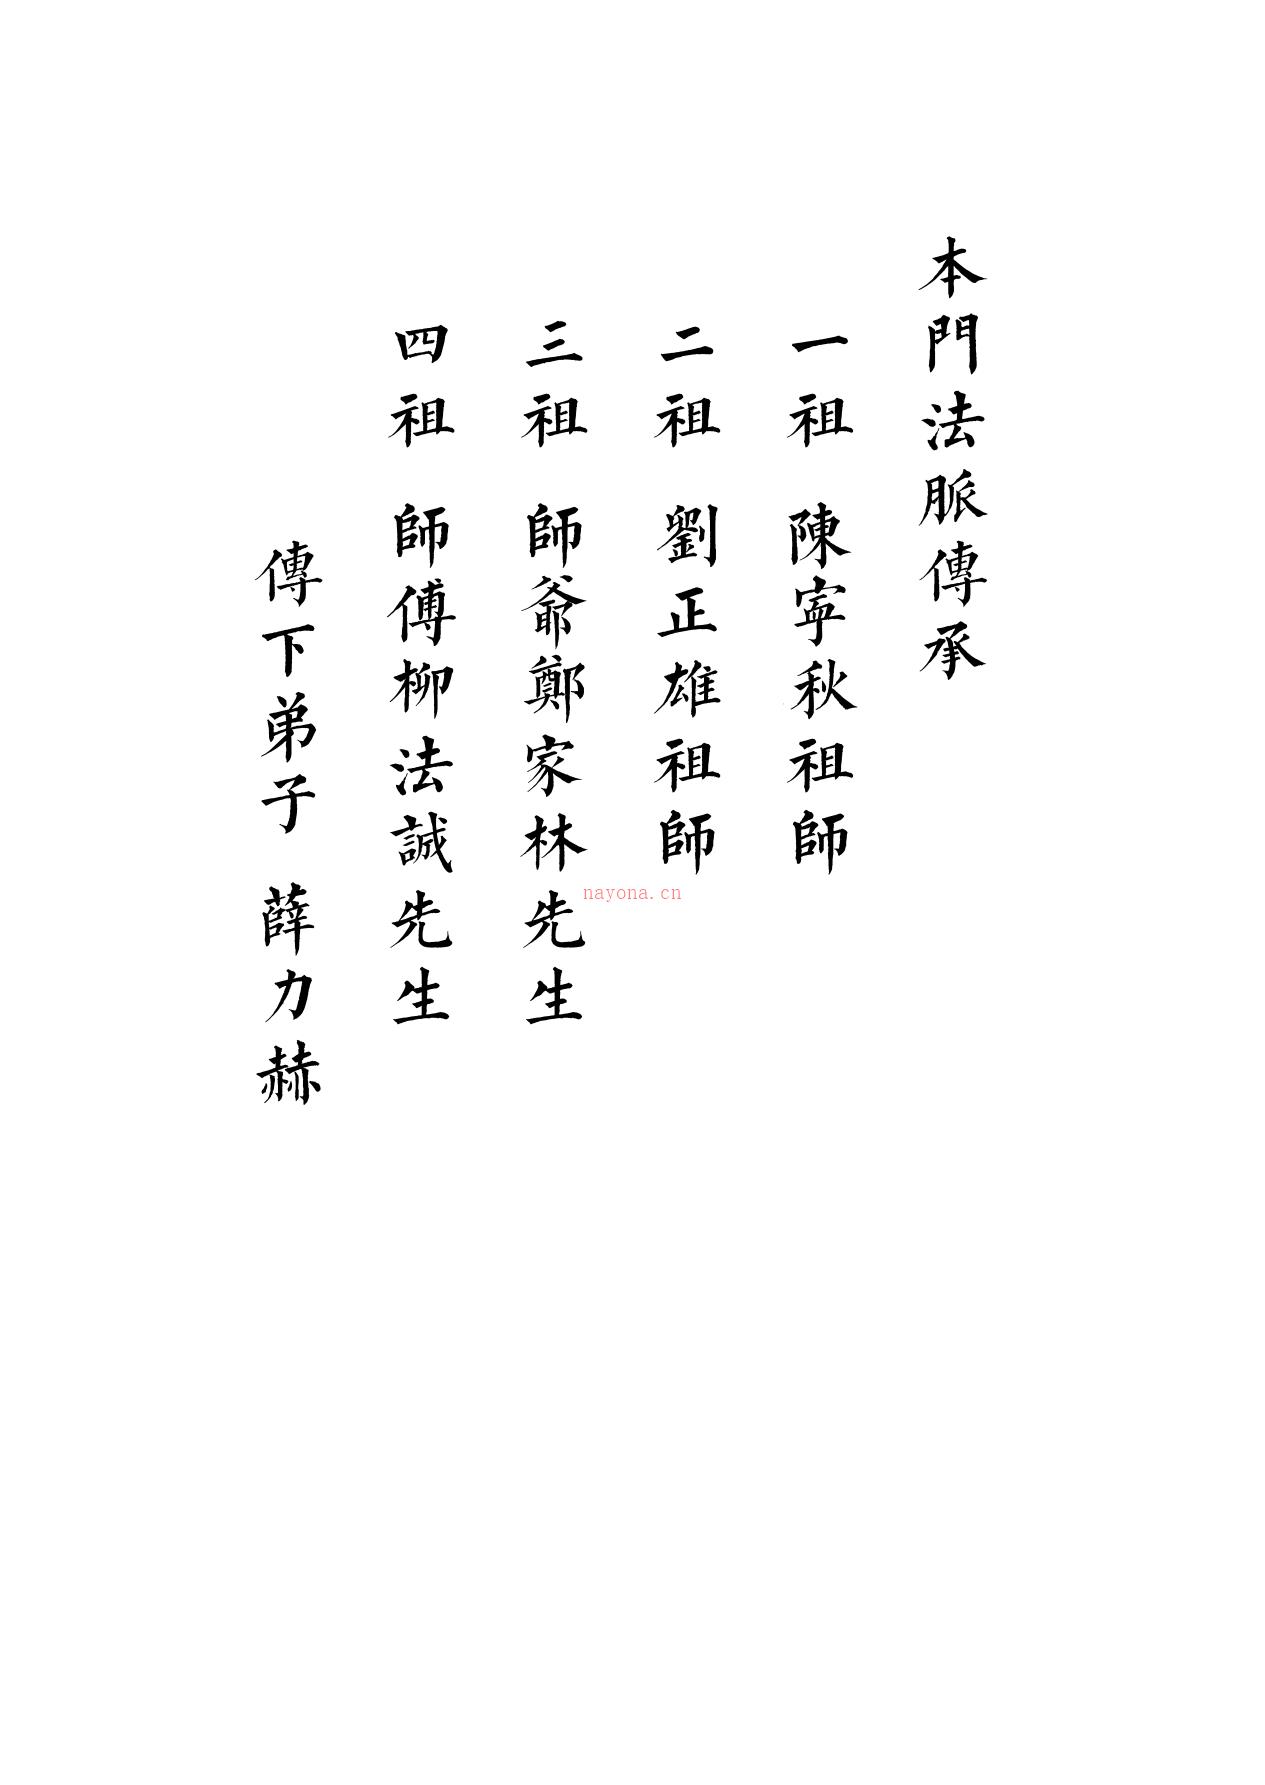 本門法脈傳承
一祖 陳寧秋祖師
二祖 劉正雄祖師
三祖 師爺鄭家林先生
四祖 師傅柳法誠先生
傳下弟子 薛力赫
nayona.cn